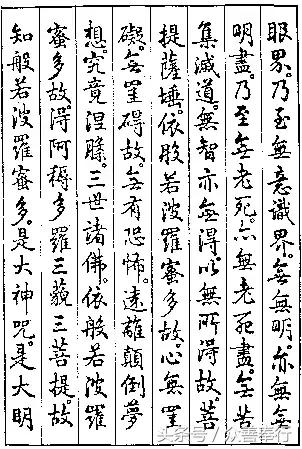 眼界。乃至無意識界。無無明。亦無無
明盡。乃至無老死。亦無老死盡。無苦
集滅道。無智亦無得。以無所得故。菩
提薩埵。依般若波羅蜜多故。心無罣
礙。無罣礙故。無有恐怖。遠離顛倒夢
想。究竟涅槃。三世諸佛。依般若波羅
蜜多故。得阿耨多羅三藐三菩提。故
知般若波羅蜜多。是大神咒。是大明
头条号 / 众善奉行